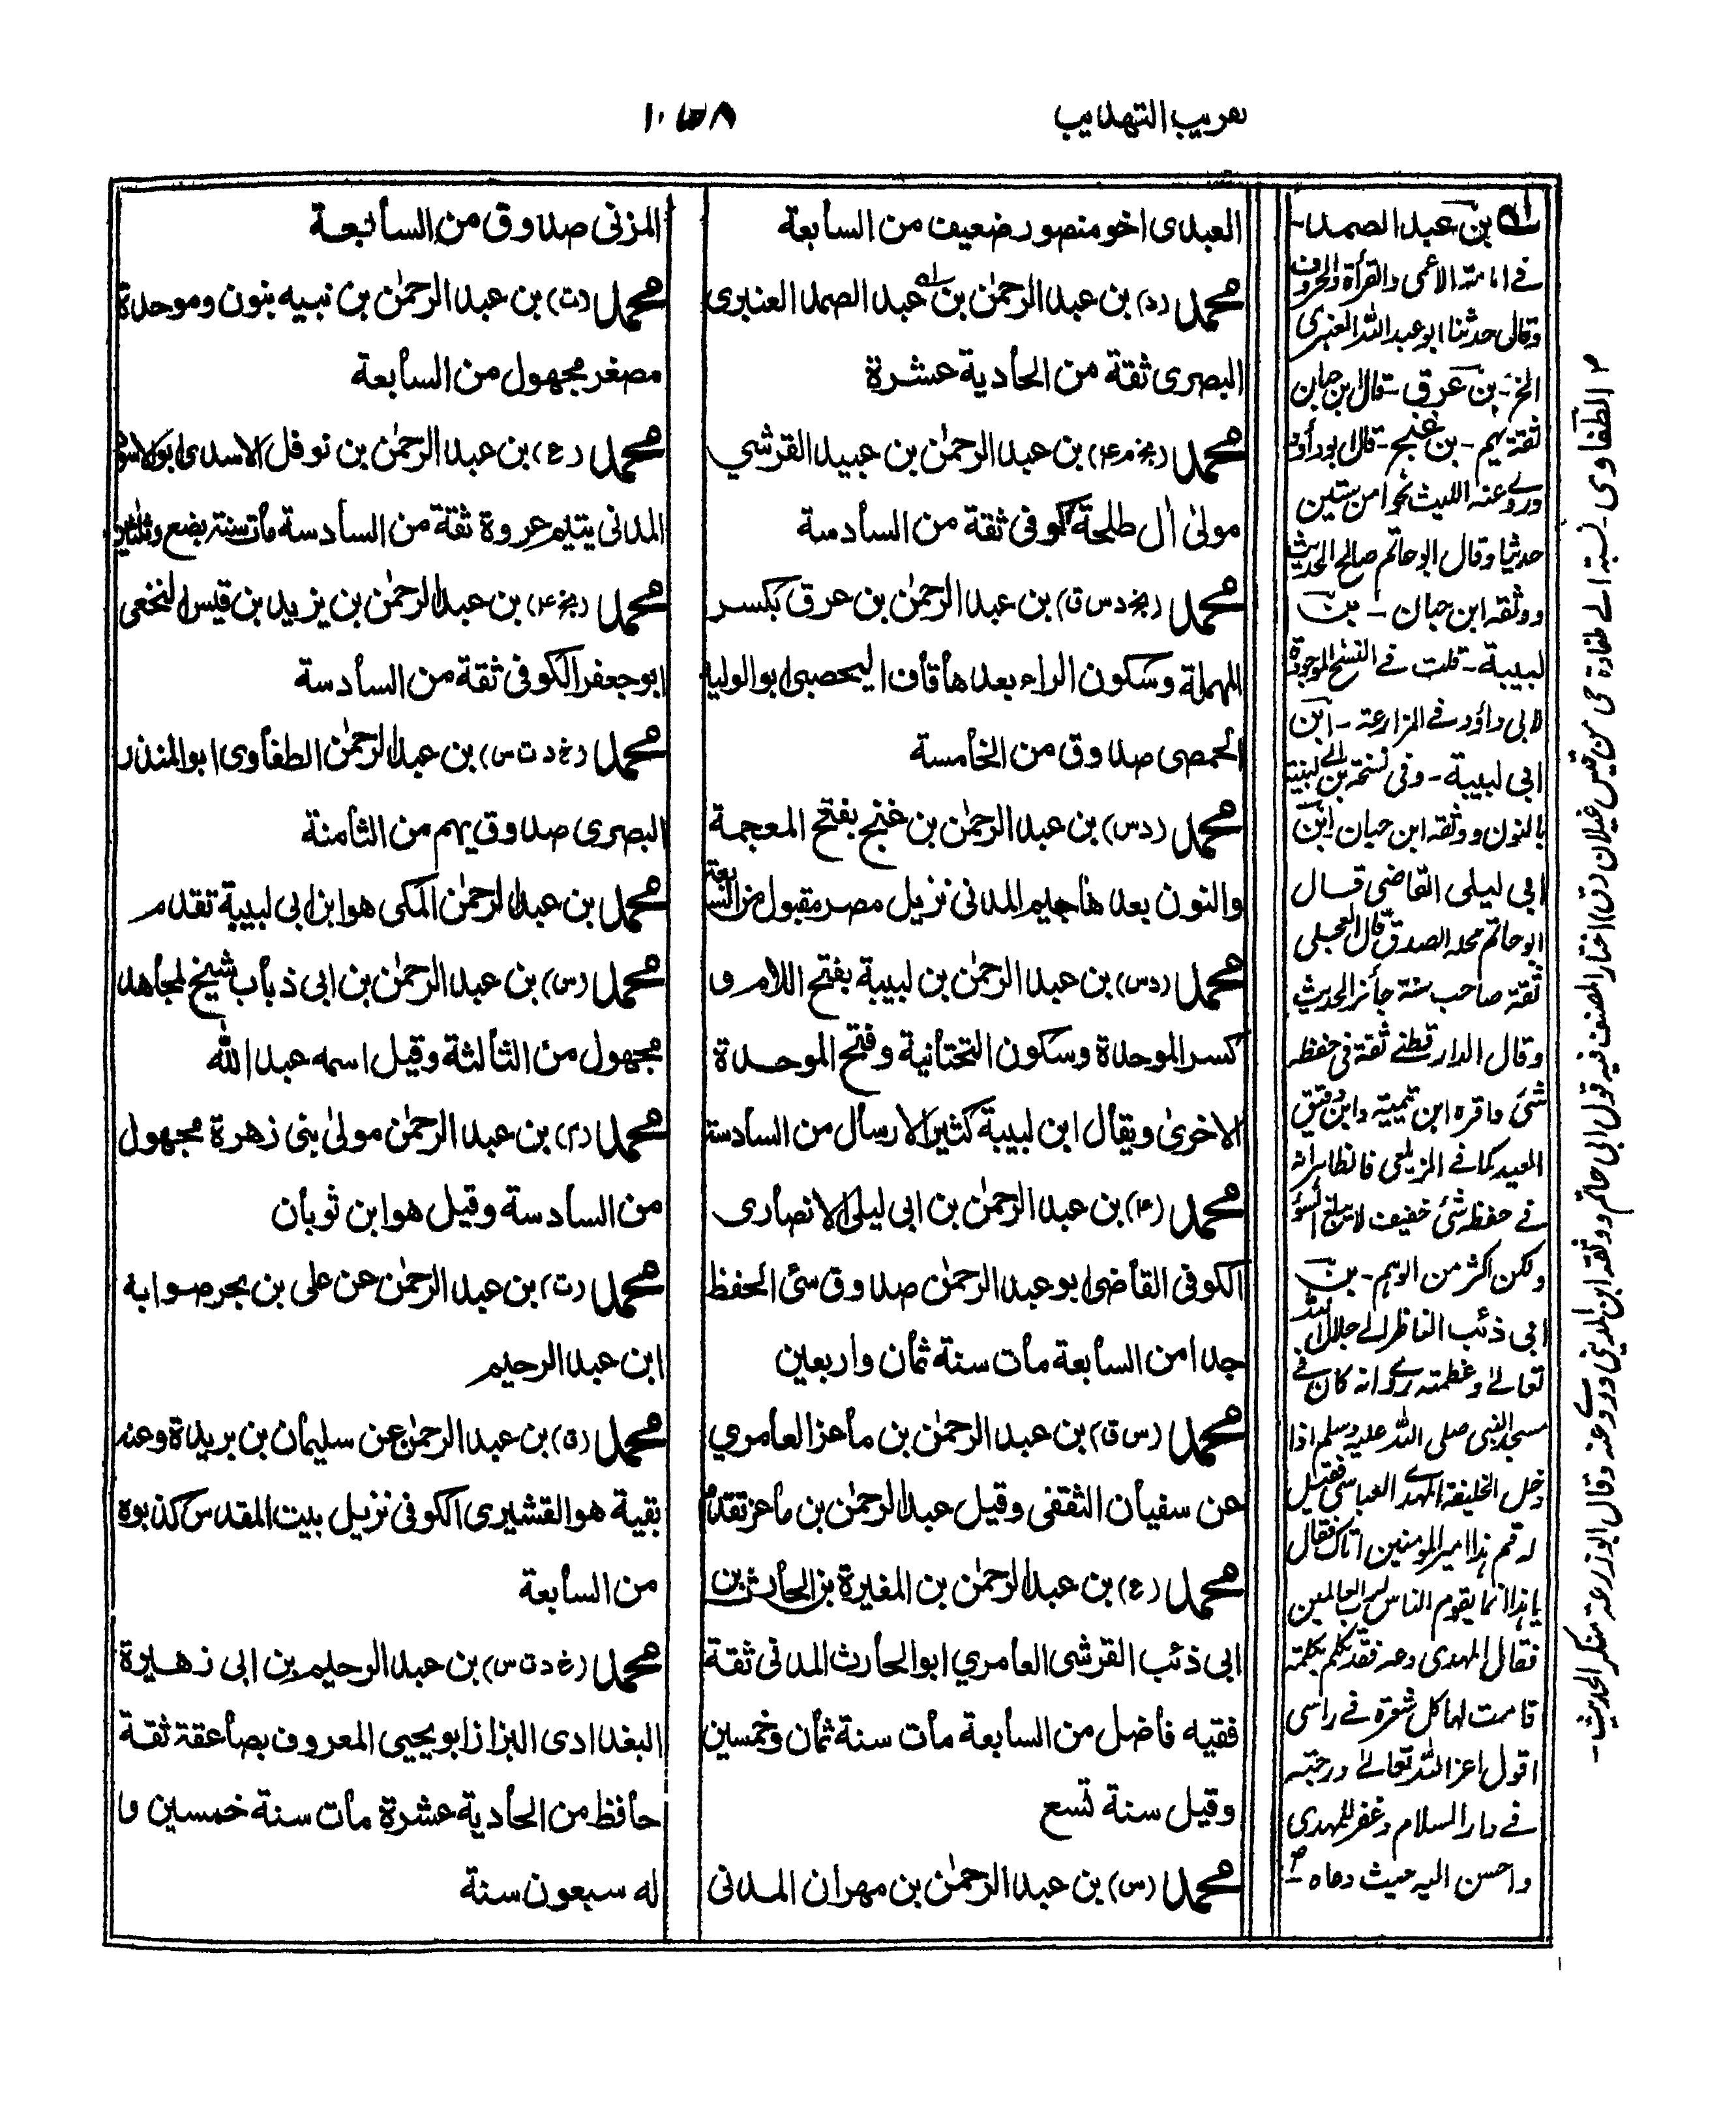 تقريب التهذيب
العبدى اخو منصور ضعيف من السابعة
محمد (د) بن عبد الرحمٰن بن عبد الصمد العنبرى
البصرى ثقة من الحادية عشرة
محمد (بخ م ۴) بن عبد الرحمٰن بن عبيد القرشي
مولىٰ اٰل طلحة كوفى ثقة من السادسة
محمد (بخ د س ق) بن عبد الرحمٰن بن عرق بكسر
المهملة وسكون الراء بعدها قاف اليحصبى ابو الوليد
الحمصى صدوق من الخامسة
محمد (د س) بن عبد الرحمٰن بن غنج بفتح المعجمة
والنون بعدها جيم المدنى نزيل مصر مقبول من السابعة
محمد (د س) بن عبد الرحمٰن بن لبيبة بفتح اللام و
كسر الموحدة وسكون التحتانية وفتح الموحدة
الاخرىٰ ويقال ابن لبيبة كثير الارسال من السادسة
محمد (۴) بن عبد الرحمٰن بن ابى ليلى الانصارى
الكوفى القاضى ابو عبد الرحمٰن صدوق سئ الحفظ
جدا من السابعة مات سنة ثمان واربعين
محمد (س ق) بن عبد الرحمٰن بن ماعز العامري
عن سفيان الثقفى وقيل عبد الرحمٰن بن ماعز تقدم
محمد (ع) بن عبد الرحمٰن بن المغيرة بن الحارث بن
ابى ذئب القرشى العامري ابو الحارث المدنى ثقة
فقيه فاضل من السابعة مات سنة ثمان وخمسين
وقيل سنة تسع
محمد (س) بن عبد الرحمٰن بن مهران المدنى
المزنى صدوق من السابعة
محمد (ت) بن عبد الرحمٰن بن نبيه بنون وموحدة
مصغر مجهول من السابعة
محمد (ع) بن عبد الرحمٰن بن نوفل الاسدى ابو الاسود
المدنى يتيم عروة ثقة من السادسة مات سنة بضع وثلثين
محمد (بخ ۴) بن عبد الرحمٰن بن يزيد بن قيس النخعى
ابو جعفر الكوفى ثقة من السادسة
محمد (خ د ت س) بن عبد الرحمٰن الطفاوى ابو المنذر
البصرى صدوق يهم من الثامنة
محمد بن عبد الرحمٰن المكى هو ابن ابى لبيبة تقدم
محمد (س) بن عبد الرحمٰن بن ابى ذباب شيخ لمجاهد
مجهول من الثالثة وقيل اسمه عبد الله
محمد (م) بن عبد الرحمٰن مولىٰ بنى زهرة مجهول
من السادسة وقيل هو ابن ثوبان
محمد (ت) بن عبد الرحمٰن عن على بن بحر صوابه
ابن عبد الرحيم
محمد (ق) بن عبد الرحمٰن عن سليمان بن بريدة وعنه
بقية هو القشيرى الكوفى نزيل بيت المقدس كذبوه
من السابعة
محمد (خ د ت س) بن عبد الرحيم بن ابى زهيرة
البغدادى البزاز ابو يحيى المعروف بصاعقة ثقة
حافظ من الحادية عشرة مات سنة خمسين و
له سبعون سنة
بن عبد الصمد -
فى امامة الاعمى والقرأة والحروف
وقال حدثنا ابو عبد الله العنبرى
الخ - بن عرق - قال ابن حبان
ثقة يهم - بن غنج - قال ابو داؤد
وروى عنه الليث نحوا من ستين
حديثا وقال ابو حاتم صالح الحديث
ووثقه ابن حبان - بن
لبيبة - قلت فى النسخ الموجودة
لابى داؤد فى المزارعة - ابن
ابى لبيبة - وفى نسخة بن ابى لبينة
بالنون ووثقه ابن حبان ابن
ابى ليلى القاضى قال
ابو حاتم محله الصدق قال العجلى
ثقة صاحب سنة جائز الحديث
وقال الدارقطنى ثقة فى حفظه
شئ واقره ابن تيمية وابن دقيق
العيد كما فى الزيلعى فالظاهر انه
فى حفظه شئ خفيف لا يبلغ السوء
ولكن اكثر من الوهم - بن
ابى ذئب الناظر الى جلال الله
تعالىٰ وعظمته روى انه كان فى
مسجد النبى صلى الله عليه وسلم اذا
دخل الخليفة المهدى العباسى فقيل
له قم هذا امير المومنين اتاك فقال
يا هذا انما يقوم الناس لرب العالمين
فقال المهدى دعه فقد تكلم بكلمة
قامت لها كل شعرة فى راسى
اقول اعز الله تعالىٰ درجته
فى دار السلام وغفر للمهدى
واحسن اليه حيث دعاه -
الطفاوى - نسبة الى طفاوة حى من قيس عيلان (ق) اختار المصنف فيه قول ابى حاتم ووثقه ابن المدينى وروى عنه وقال ابو زرعة منكر الحديث -